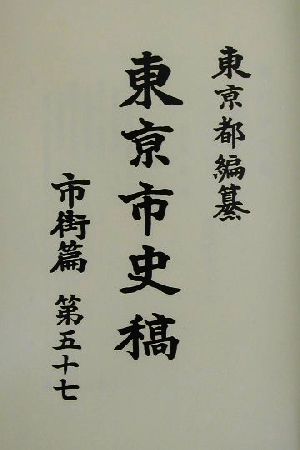 東京都編纂
東京市史稿
市街篇 第五十七